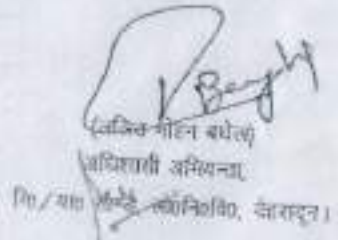 (ललित मोहन बधेल)
अधिशासी अभियन्ता,
नि०/या० लो०नि०वि०, देहरादून।